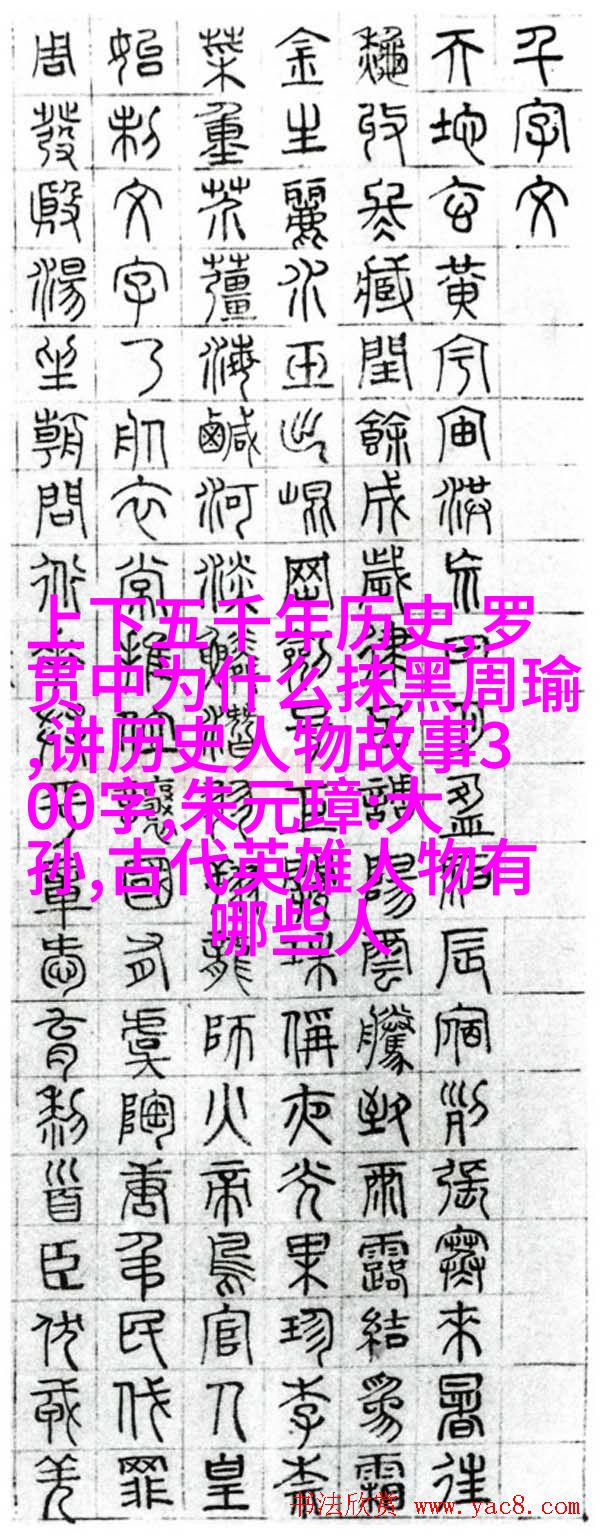 千字文
天地玄黃宇宙洪荒日月盈昃辰宿列張寒來暑往
秋收冬藏閏餘成歲律呂調陽雲騰致雨露結為霜
金生麗水玉出崐岡劍號巨闕珠稱夜光果珍李柰
菜重芥薑海鹹河淡鱗潛羽翔龍師火帝鳥官人皇
始制文字乃服衣裳推位讓國有虞陶唐弔民伐罪
周發殷湯坐朝問道垂拱平章愛育黎首臣伏戎羌
上下五千年历史,罗
贯中为什么抹黑周瑜
,讲历史人物故事3
00字,朱元璋:大
孙,古代英雄人物有
哪些人
书法欣赏 www.yac8.com